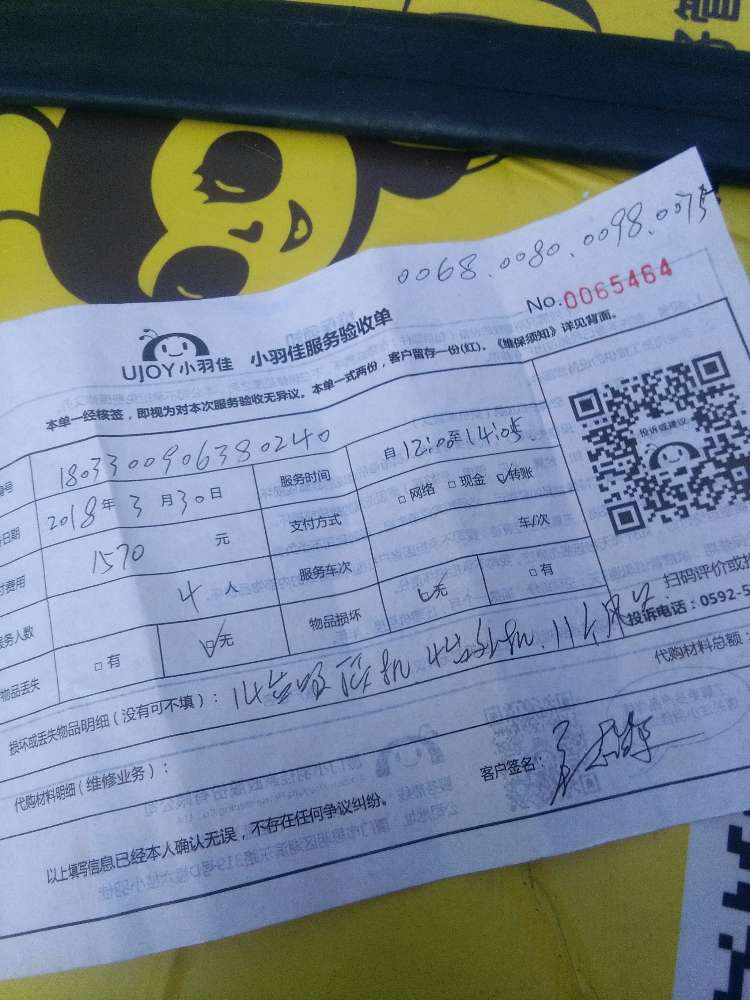 0068.0080.0098.007
No.0065464
UJOY小羽佳 小羽佳服务验收单
本单一经核签，即视为对本次服务验收无异议。本单一式两份，客户留存一份(红)。《维保须知》详见背面。
编号 1803300906380240 服务时间 自12:00至14:05
日期 2018年3月30日 支付方式 □网络 □现金 ☑转账
付费用 1570 元 服务车次 车/次
服务人数 4 人 物品损坏 ☑无 □有
物品丢失 □有 ☑无
投诉或建议
扫码评价或投
投诉电话：0592-5
损坏或丢失物品明细（没有可不填）：14台吸顶机 4台外机.11个风
代购材料总额：
代购材料明细（维修业务）：
客户签名：
以上填写信息已经本人确认无误，不存在任何争议纠纷。